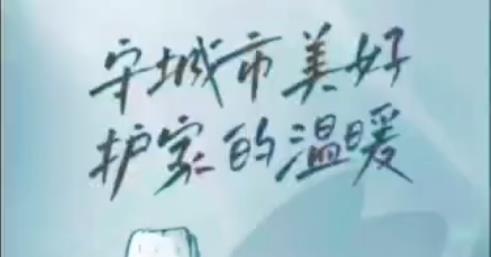 守城市美好
护家的温暖